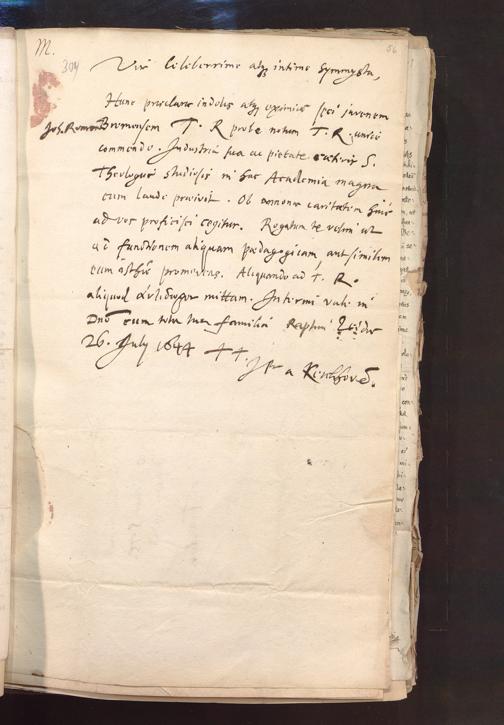 M.
56
304
Vir Celeberrime atq; intime Symmysta,
Hunc præclaræ indolis atq; eximiæ spei juvenem
Joh. Bremensem T. R probe notum T. R. unicè
commendo. Industria sua ac pietate cæteris S.
Theologiæ studiosis in hac Academia magna
cum laude præivit. Ob annonæ caritatem hinc
ad vos proficisci cogitur. Rogatum te velim ut
ad functionem aliquam pædagogicam aut similem
eum promoveas. Aliquando ad T. R.
aliquod mittam. Interim vale in
Dno cum tota tua familia Raptim
26. July 1644
a